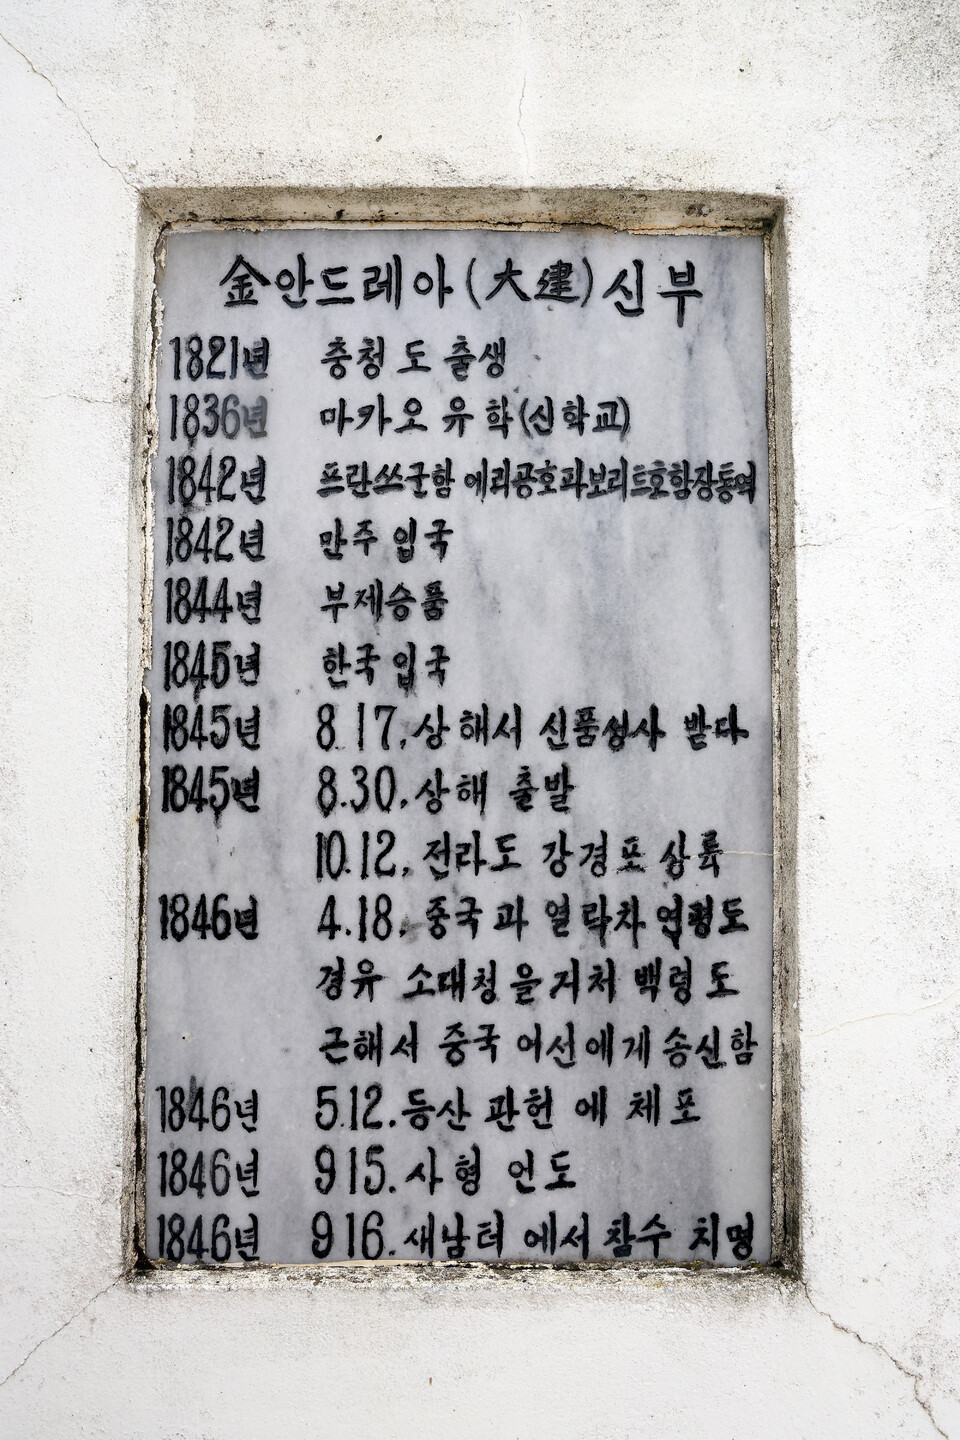 金안드레아(大建)신부
1821년 충청도 출생
1836년 마카오 유학(신학교)
1842년 프란쓰군함 에리공호파보리트호함장통역
1842년 만주 입국
1844년 부제승품
1845년 한국 입국
1845년 8.17.상해서 신품성사 받다
1845년 8.30.상해 출발
10.12. 전라도 강경포 상륙
1846년 4.18. 중국과 열락차 연평도
경유 소대청을거처 백령도
근해서 중국 어선에게 송신함
1846년 5.12.등산 관헌에 체포
1846년 9.15.사형 언도
1846년 9 16.새남터 에서 참수 치명